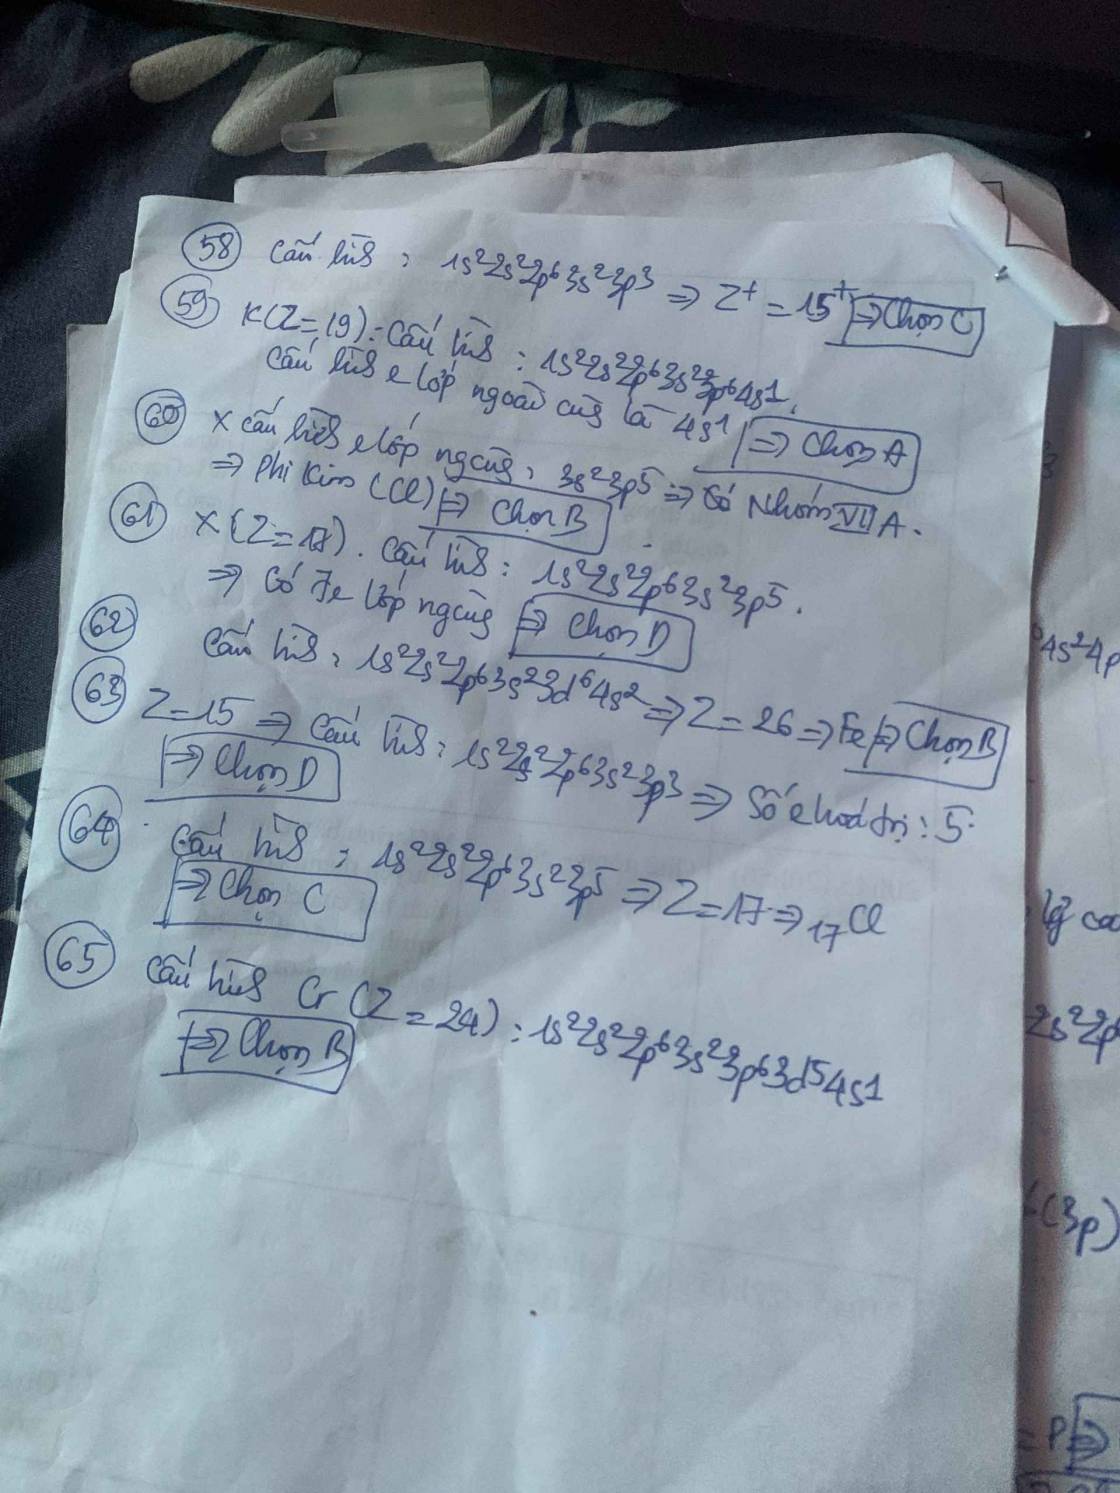 58 Cấu hình: 1s²2s²2p⁶3s²3p³ ⇒ Z⁺ = 15⁺ ⇒ Chọn C
59 K(Z=19): Cấu hình: 1s²2s²2p⁶3s²3p⁶4s¹.
Cấu hình e lớp ngoài cùng là 4s¹ ⇒ Chọn A
60 X cấu hình e lớp ngcùng: 3s²3p⁵ ⇒ Có Nhóm VIIA.
⇒ Phi Kim (Cl) ⇒ Chọn B
61 X(Z=17). Cấu hình: 1s²2s²2p⁶3s²3p⁵.
⇒ Có 7e lớp ngcùng ⇒ Chọn D
62 Cấu hình: 1s²2s²2p⁶3s²3d⁶4s² ⇒ Z=26 ⇒ Fe ⇒ Chọn B
63 Z=15 ⇒ Cấu hình: 1s²2s²2p⁶3s²3p³ ⇒ Số e hoá trị: 5.
⇒ Chọn D
64 Cấu hình: 1s²2s²2p⁶3s²3p⁵ ⇒ Z=17 ⇒ ₁₇Cl
⇒ Chọn C
65 Cấu hình Cr (Z=24): 1s²2s²2p⁶3s²3p⁶3d⁵4s¹
⇒ Chọn B
4s²4p
lý
2s²2p
(3p)
= P ⇒